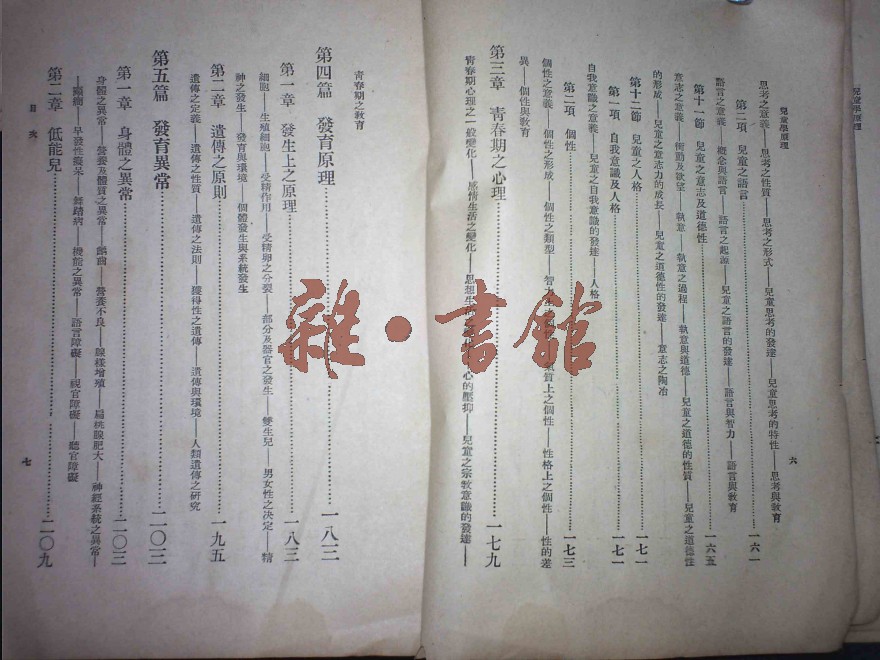 兒童學原理
六
思考之意義——思考之性質——思考之形式——兒童思考的發達——兒童思考的特性——思考與教育
第二項 兒童之言語……一六一
語言之意義——概念與語言——語言之起源——兒童之語言的發達——語言與智力——語言與教育
第十一節 兒童之意志及道德性……一六五
意志之意義——衝動及欲望——執意——執意之過程——執意與道德——兒童之道德的性質——兒童之道德性
的形成——兒童之意志力的成長——兒童之道德性的發達——意志之陶冶
第十二節 兒童之人格……一七一
第一項 自我意識及人格……一七一
自我意識之意義——兒童之自我意識的發達——人格
第二項 個性……一七三
個性之意義——個性之形成——個性之類型——智力 質上之個性——性格上之個性——性的差
異——個性與教育
第三章 青春期之心理……一七九
青春期心理之一般變化——感情生活之變化——思想生 心的壓抑——兒童之宗教意識的發達——
青春期之教育
第四篇 發育原理……一八三
第一章 發生上之原理……一八三
細胞——生殖細胞——受精作用——受精卵之分裂——部分及器官之發生——雙生兒——男女性之決定——精
神之發生——發育與環境——個體發生與系統發生
第二章 遺傳之原則……一九五
遺傳之定義——遺傳之性質——遺傳之法則——獲得性之遺傳——遺傳與環境——人類遺傳之研究
第五篇 發育異常……二〇三
第一章 身體之異常……二〇三
身體之異常——營養及體質之異常——營養不良——腺樣增殖——扁桃腺肥大——神經系統之異常——
癲癇——早發性癡呆——舞蹈病——機能之異常——語言障礙——視官障礙——聽官障礙
第二章 低能兒……二〇九
目次
七
兒童學原理
雜·書館